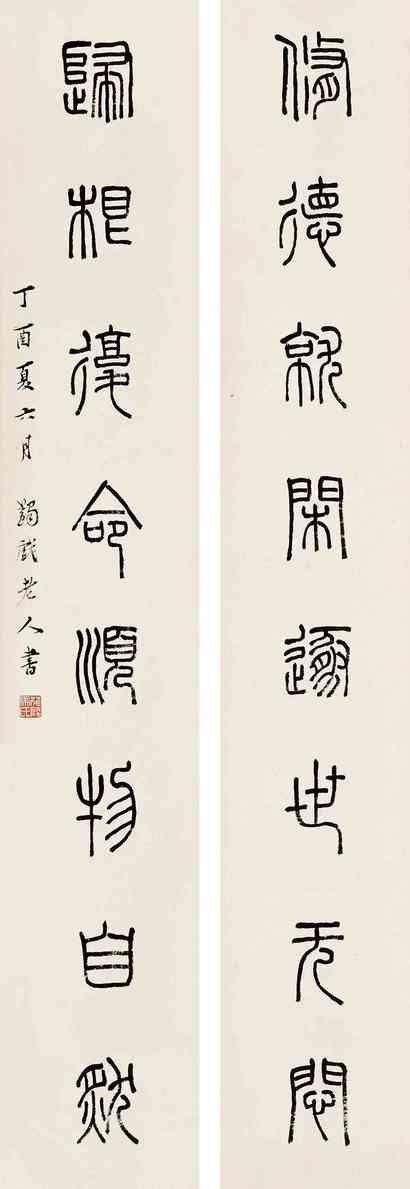 修德就閑遯世无悶
歸根復命順物自然
丁酉夏六月 蠲戲老人書